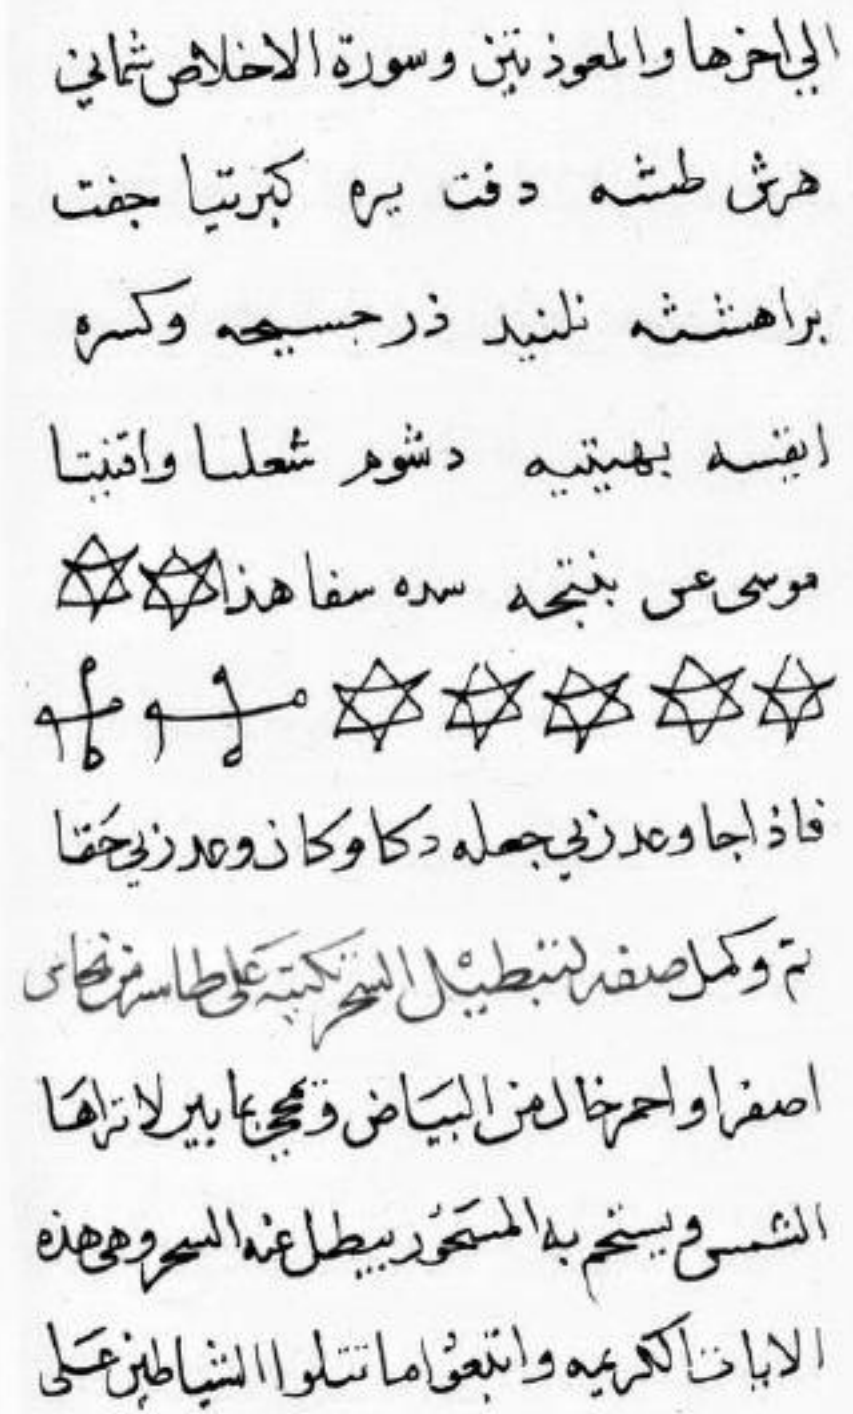 الي اخرها والمعوذتين وسورة الاخلاص ثماني
هرش طشه دفت يره كبرتيا جفت
براهششه نلنيد ذرجسيحه وكسره
ايقسه بهيتيه دشوم شعلسا واقنبتا
موسى عس بنتجه سده سفا هذا
فاذا جا وعد ربي جعله دكا وكان وعد ربي حَقا
تم وكمل صفه لتبطيل السحر تكتبه عَلى طاسه من نحاس
اصفر او احمر خال من البيَاض وتمحي بما بير لا تراهَا
الشمس ويستحم به المسحَور يبطل عنه السحر وهي هذه
الايات الكريمه واتبعوا ما تتلوا الشياطين عَلى